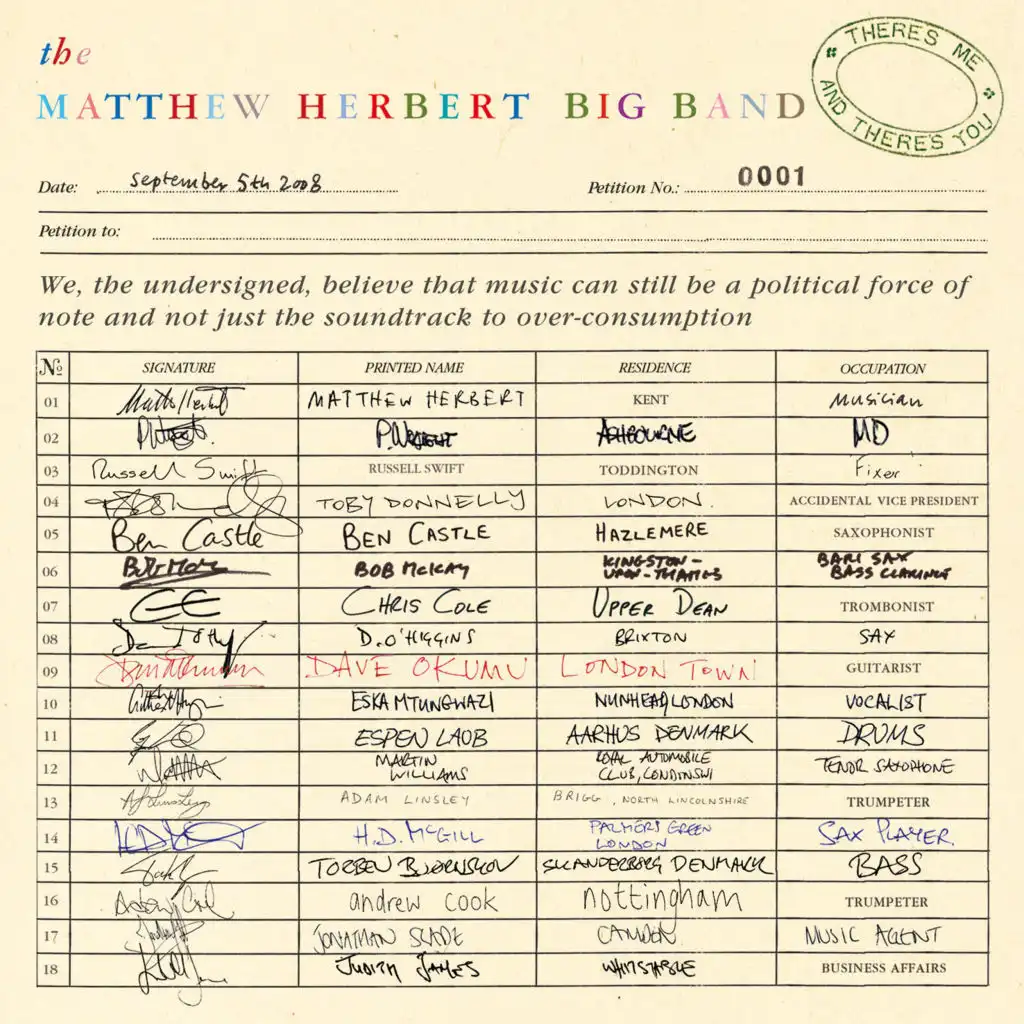 the
MATTHEW HERBERT BIG BAND
THERE'S ME AND THERE'S YOU
Date: September 5th 2008
Petition No.: 0001
Petition to:
We, the undersigned, believe that music can still be a political force of
note and not just the soundtrack to over-consumption
No SIGNATURE PRINTED NAME RESIDENCE OCCUPATION
01 MATTHEW HERBERT KENT Musician
02 ASHBOURNE MD
03 Russell Swift RUSSELL SWIFT TODDINGTON Fixer
04 TOBY DONNELLY LONDON. ACCIDENTAL VICE PRESIDENT
05 Ben Castle BEN CASTLE HAZLEMERE SAXOPHONIST
06 BOB McKAY KINGSTON-
UPON-THAMES BARI SAX
BASS CLARINET
07 CHRIS COLE UPPER DEAN TROMBONIST
08 D. O'HIGGINS BRIXTON SAX
09 DAVE OKUMU LONDON TOWN GUITARIST
10 ESKA MTUNGWAZI NUNHEAD, LONDON VOCALIST
11 ESPEN LAUB AARHUS DENMARK DRUMS
12 MARTIN
WILLIAMS ROYAL AUTOMOBILE
CLUB, LONDON SW1 TENOR SAXOPHONE
13 ADAM LINSLEY BRIGG, NORTH LINCOLNSHIRE TRUMPETER
14 H.D. McGILL PALMERS GREEN
LONDON SAX PLAYER.
15 TORBEN BJØRNSKOV SKANDERBORG DENMARK BASS
16 andrew cook nottingham TRUMPETER
17 JONATHAN SLADE CAMDEN MUSIC AGENT
18 JUDITH JAMES WHITSTABLE BUSINESS AFFAIRS